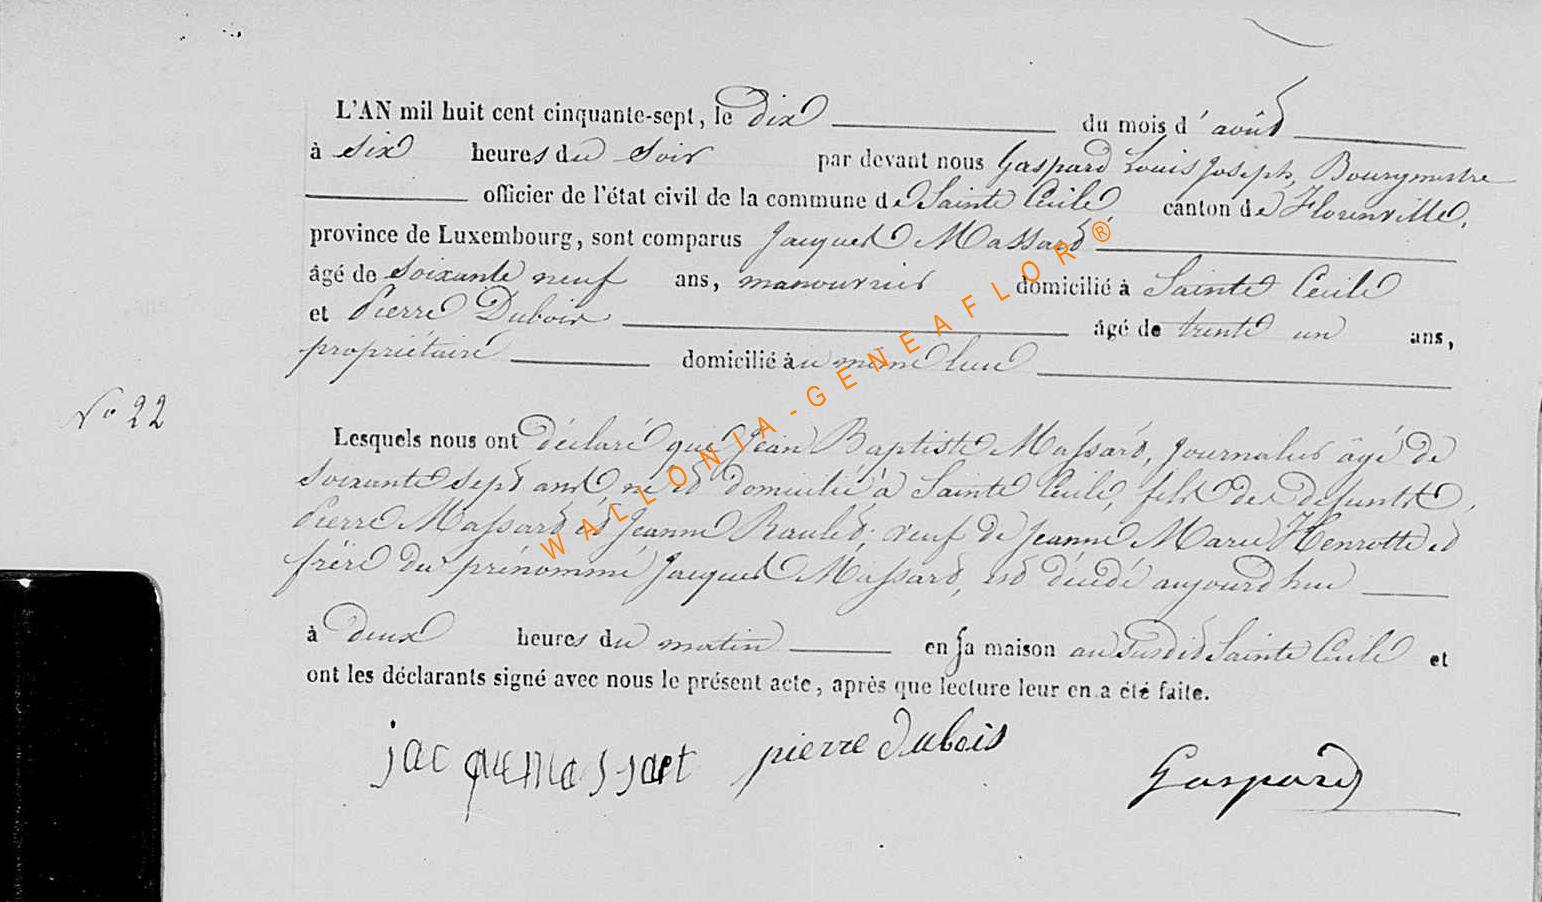 L'AN mil huit cent cinquante-sept, le dix du mois d'août
à six heures du soir par devant nous Gaspard Louis Joseph, Bourgmestre
officier de l'état civil de la commune de Sainte Cécile canton de Florenville,
province de Luxembourg, sont comparus Jacques Massard
âgé de soixante neuf ans, manouvrier domicilié à Sainte Cécile
et Pierre Dubois âgé de trente un ans,
propriétaire domicilié au même lieu
N° 22
Lesquels nous ont déclaré que Jean Baptiste Massard, journalier âgé de
soixante sept ans, né et domicilié à Sainte Cécile, fils des defunts
Pierre Massard et Jeanne Raulet; veuf de Jeanne Marie Henrotte et
frère du prénommé Jacques Massard, est décédé aujourd'hui
à deux heures du matin en sa maison au susdit Sainte Cécile et
ont les déclarants signé avec nous le présent acte, après que lecture leur en a été faite.
jacque massart pierre dubois Gaspard
WALLONIA-GENEAFLOR®